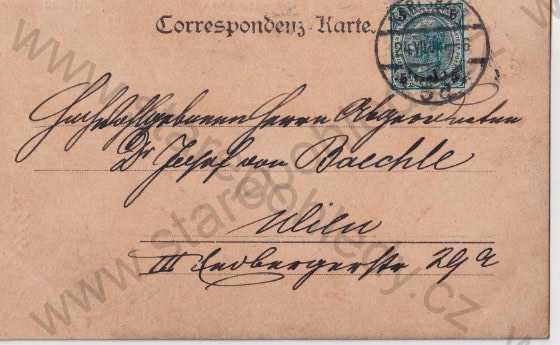 Correspondenz-Karte.
Hochwohlgeboren Herrn Abgeordneten
Dr Josef von Baechle
Wien
III Erdbergerstr 29a
www.stareopohledy.cz